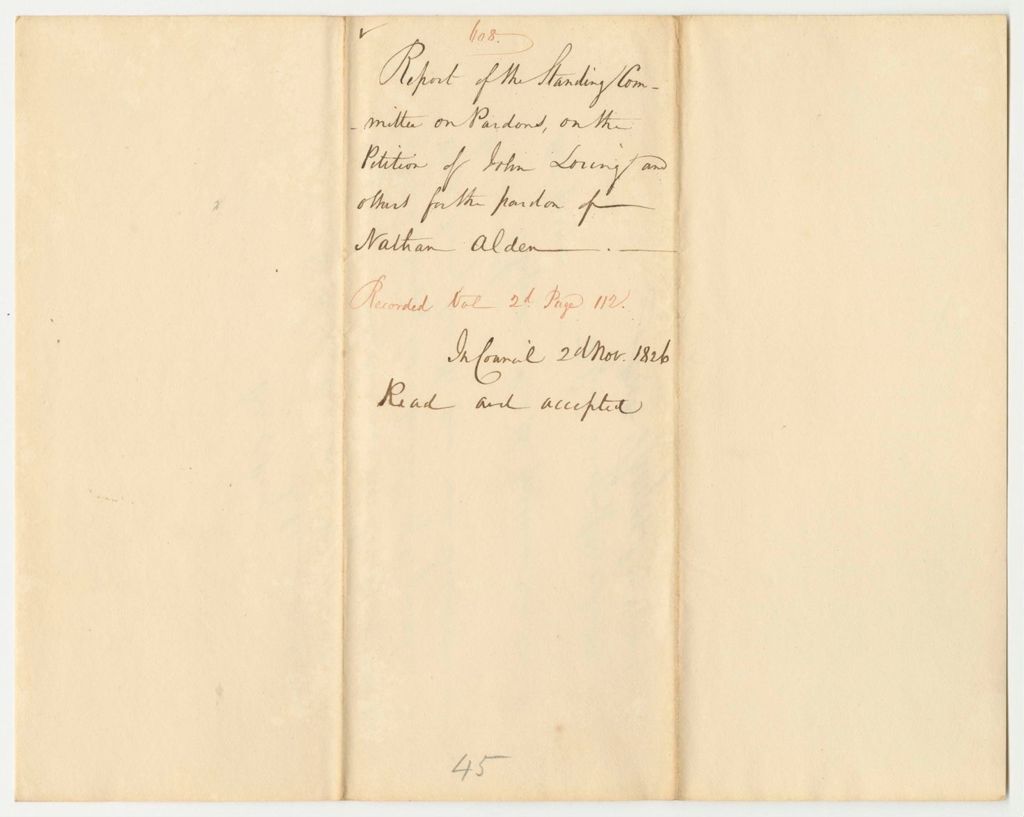 608.
Report of the Standing Com-
-mittee on Pardons, on the
Petition of John Loring and
others for the pardon of
Nathan Alden.
Recorded Vol 2d. Page 112.
In Council 2d Nov. 1826
Read and accepted
45